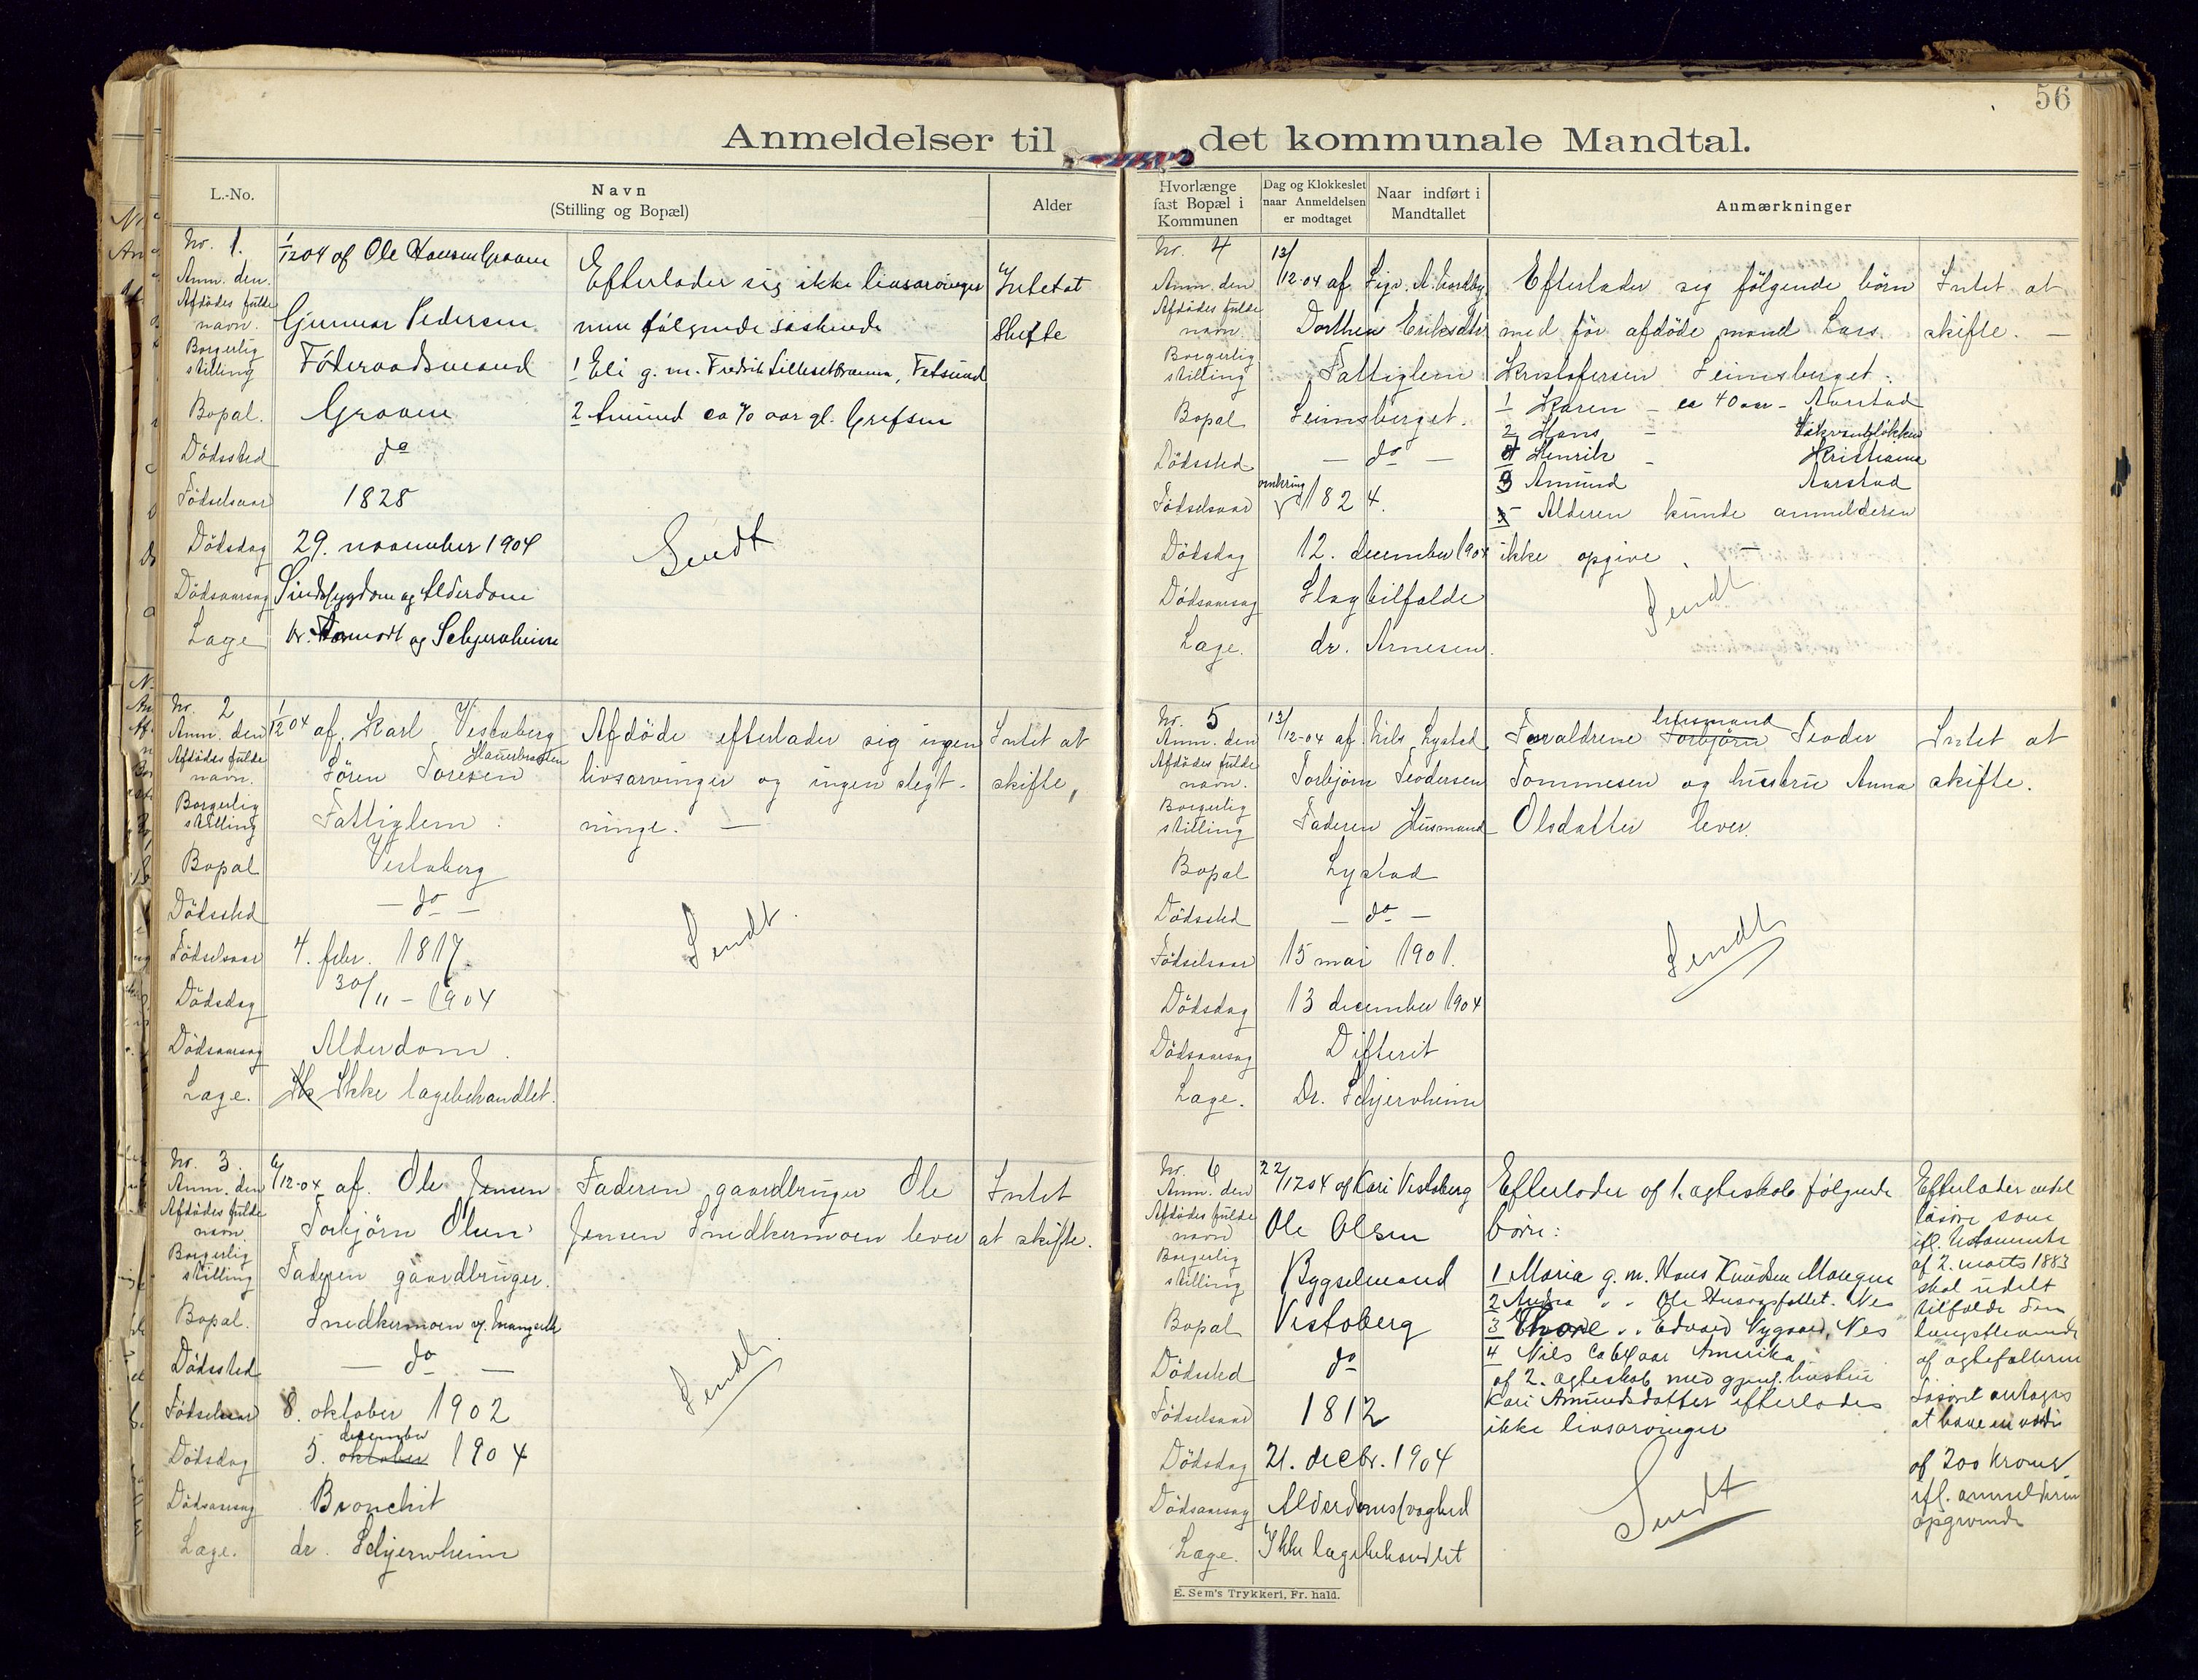 56
Anmeldelser til det kommunale Mandtal.
L.-No.
Navn
(Stilling og Bopæl)
Alder
No. 1.
1/12 04 af Ole Hansen Graaen
Anm. den.
Afdödes fulde
navn. Gunnar Pedersen
Borgerlig
stilling Föderaadsmand
Bopæl. Graaen
Dödssted do
Födselsaar 1828
Dödsdag 29. november 1904
Dödsaarsag Sindssygdom og Alderdom
Læge dr. og Schjervheim
Efterlader sig ikke livsarvinger
men følgende søskende
1 Eli g. m. Fredrik Fetsund
2 Amund ca 70 aar gl. Grefsen
Sendt
Intet at
skifte
No. 2
Anm. den 1/12 04 af. Karl Vestaberg
Afdödes fulde
navn. Sören Toresen
Borgerlig
stilling Fattiglem.
Bopæl Vestaberg
Dödssted — do —
Födselsaar 4. febr. 1817.
Dödsdag 30/11 - 1904
Dödsaarsag Alderdom.
Læge. Ikke lægebehandlet.
Afdöde efterlader sig ingen
livsarvinger og ingen slegt-
ninge. —
Sendt.
Intet at
skifte,
No. 3.
Anm. den 6/12-04 af. Ole Jensen
Afdödes fulde
navn. Torbjörn Olsen
Borgerlig
stilling Faderen gaardbruger.
Bopæl. Snedkermoen
Dödssted — do —
Födselsaar 8. oktober 1902
december
Dödsdag 5. oktober 1904
Dödsaarsag Bronchit
Læge. dr. Schjerwheim
Faderen gaardbruger Ole
Jensen Snedkermoen lever
Sendt.
Intet
at skifte.
Hvorlænge
fast Bopæl i
Kommunen
Dag og Klokkeslet
naar Anmeldelsen
er modtaget
Naar indført i
Mandtallet
Anmærkninger
No. 4
Anm. den 13/12-04 af
Afdödes fulde
navn. Dorthea Eriksdtr
Borgerlig
stilling Fattiglem
Bopæl Leimsberget.
Dödssted — do —
omkring
Födselsaar 1824.
Dödsdag 12. december 1904
Dödsaarsag Slagtilfælde
Læge. dr. Arnesen.
Efterlader sig følgende børn
med för afdöde mand Lars
Kristofersen Leimsberget.
1 Karen — ca 40 aar - Aarstad
2 Hans —
4 Henrik — Kristiania
3 Amund Aarstad
Alderen kunde anmelderen
ikke opgive. —
Sendt
Intet at
skifte. —
No. 5
Anm. den 13/12-04 af. Nils Lystad
Afdödes fulde
navn. Torbjörn Teodersen
Borgerlig
stilling Faderen Husmand
Bopæl Lystad
Dödssted — do —
Födselsaar 15 mai 1901.
Dödsdag 13 december 1904
Dödsaarsag Difterit
Læge. Dr. Schjervheim
husmand
Forældrene Torbjörn Teoder
Tommesen og hustru Anna
Olsdatter lever.
Sendt
Intet at
skifte.
No. 6
Anm. den 22/12 04 af Kari Vestaberg
Afdödes fulde
navn Ole Olsen
Borgerlig
stilling Bygselmand
Bopæl Vestaberg
Dödssted do
Födselsaar 1812
Dödsdag 21. decbr. 1904
Dödsaarsag Alderdomssvaghed
Læge. Ikke lægebehandlet
Efterlader af 1. ægteskab følgende
børn:
1 Maria g. m. Hans Knudsen
2 " " Ole Nes
3 Thore " " Edvard Nygaard, Nes
4 Nils ca 64 aar Amerika
af 2. ægteskab med gjenl. hustru
Kari Amundsdatter efterlades
ikke livsarvinger
Sendt
Efterlader endel
løsøre som
ifl. testamente
af 2. marts 1883
skal udelt
tilfalde den
længstlevende
af ægtefællerne
Løsøret antages
at have en værdi
af 200 kroner
ifl. anmelderens
opgivende
E. Sem's Trykkeri, Fr. hald.